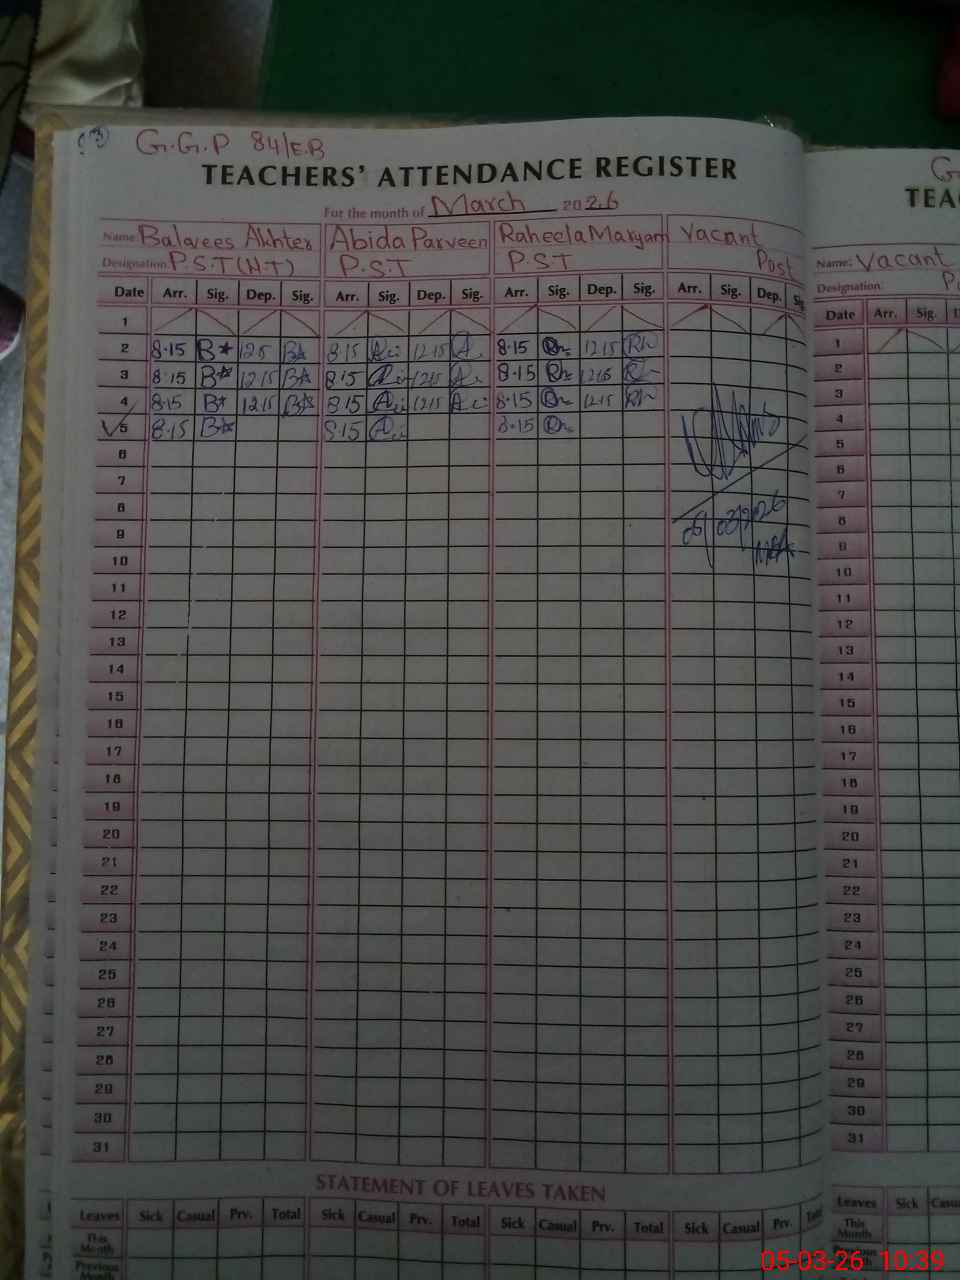 G.G.P 84/E.B
TEACHERS' ATTENDANCE REGISTER
For the month of March 2026
Name: Balqees Akhter Abida Parveen Raheela Maryam Vacant
Designation: P.S.T (H.T) P.S.T P.S.T Post
Date Arr. Sig. Dep. Sig. Arr. Sig. Dep. Sig. Arr. Sig. Dep. Sig. Arr. Sig. Dep. Sig.
1
2 8.15 125 8.15 12.15 8.15 12.15
3 8.15 12.15 8.15 12.15 8.15
4 8.15 12.15 8.15 12.15 8.15 12.15
5 8.15 8.15 8.15
6
7
8
9
10
11
12
13
14
15
16
17
18
19
20
21
22
23
24
25
26
27
28
29
30
31
05/03/2026
STATEMENT OF LEAVES TAKEN
Leaves Sick Casual Prv. Total Sick Casual Prv. Total Sick Casual Prv. Total Sick Casual Prv. Total
This Month
Previous Month
TEA
Name: Vacant
Designation:
Date Arr. Sig.
1
2
3
4
5
6
7
8
9
10
11
12
13
14
15
16
17
18
19
20
21
22
23
24
25
26
27
28
29
30
31
Leaves Sick
This Month
05-03-26 10:39